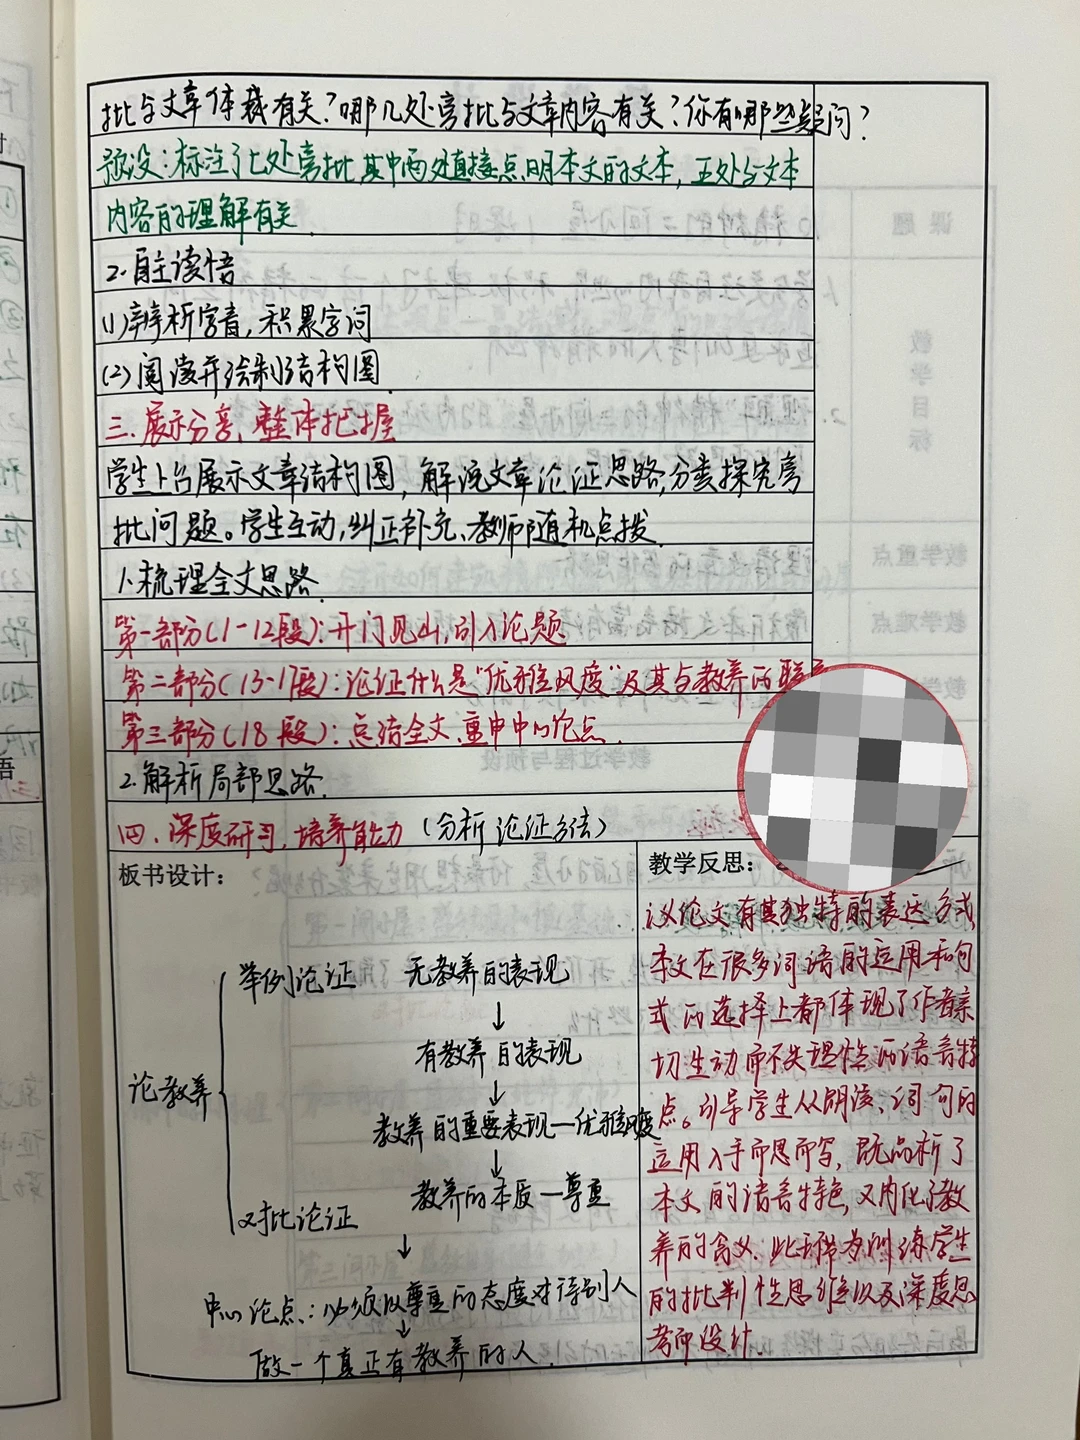 批与文章体裁有关？哪几处旁批与文章内容有关？你有哪些疑问？
预设：标注了七处旁批，其中两处直接点明本文的文本，五处与文本
内容的理解有关
2.自主读悟
(1)辨析字音，积累字词
(2)阅读并绘制结构图
三.展示分享，整体把握
学生上台展示文章结构图，解说文章论证思路，分类探究旁
批问题。学生互动，纠正补充、教师随机点拨
1.梳理全文思路
第一部分(1-12段)：开门见山，引入论题
第二部分(13-17段)：论证什么是“优雅风度”及其与教养的联
第三部分(18段)：总结全文，重申中心论点.
2.解析局部思路
四.深度研习，培养能力(分析论证方法)
板书设计：
论教养
举例论证
对比论证
无教养的表现
↓
有教养的表现
↓
教养的重要表现—优雅风度
↓
教养的本质—尊重
↓
中心论点：必须以尊重的态度对待别人
↓
做一个真正有教养的人.
教学反思：
议论文有其独特的表达方式，
本文在很多词语的运用和句
式的选择上都体现了作者亲
切生动而不失理性的语言特
点。引导学生从朗读、词句的
运用入手而思而写，既品析了
本文的语言特色，又内化了教
养的含义.此环节为训练学生
的批判性思维以及深度思
考而设计.
课题
教学目标
教学重点
教学难点
教学过程与预设